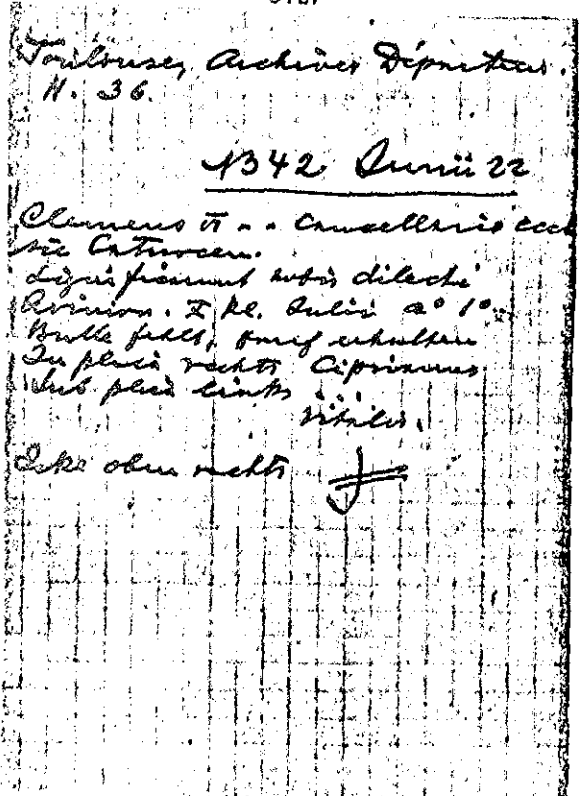 Toulouse, Archives Départem.
H. 36.
1342 Junii 22
Clemens VI . . Cancellario eccle
sie Caturcen.
Significarunt nobis dilecti
Avinion. X kl. Julii a° 1°
Bulle fehlt, Hanf erhalten
In plica rechts Ciprianus
Sub plica links ...
Vitalis.
Ecke oben rechts